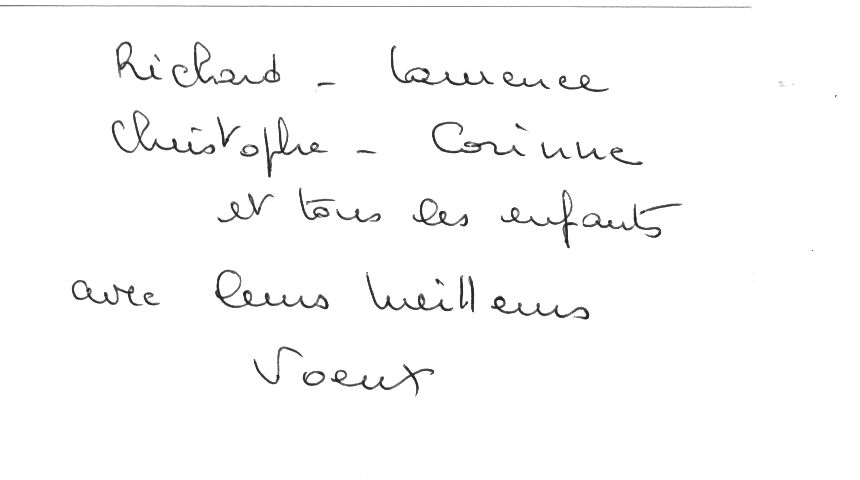 Richard - Laurence
Christophe - Corinne
et tous les enfants
avec leurs meilleurs
Voeux